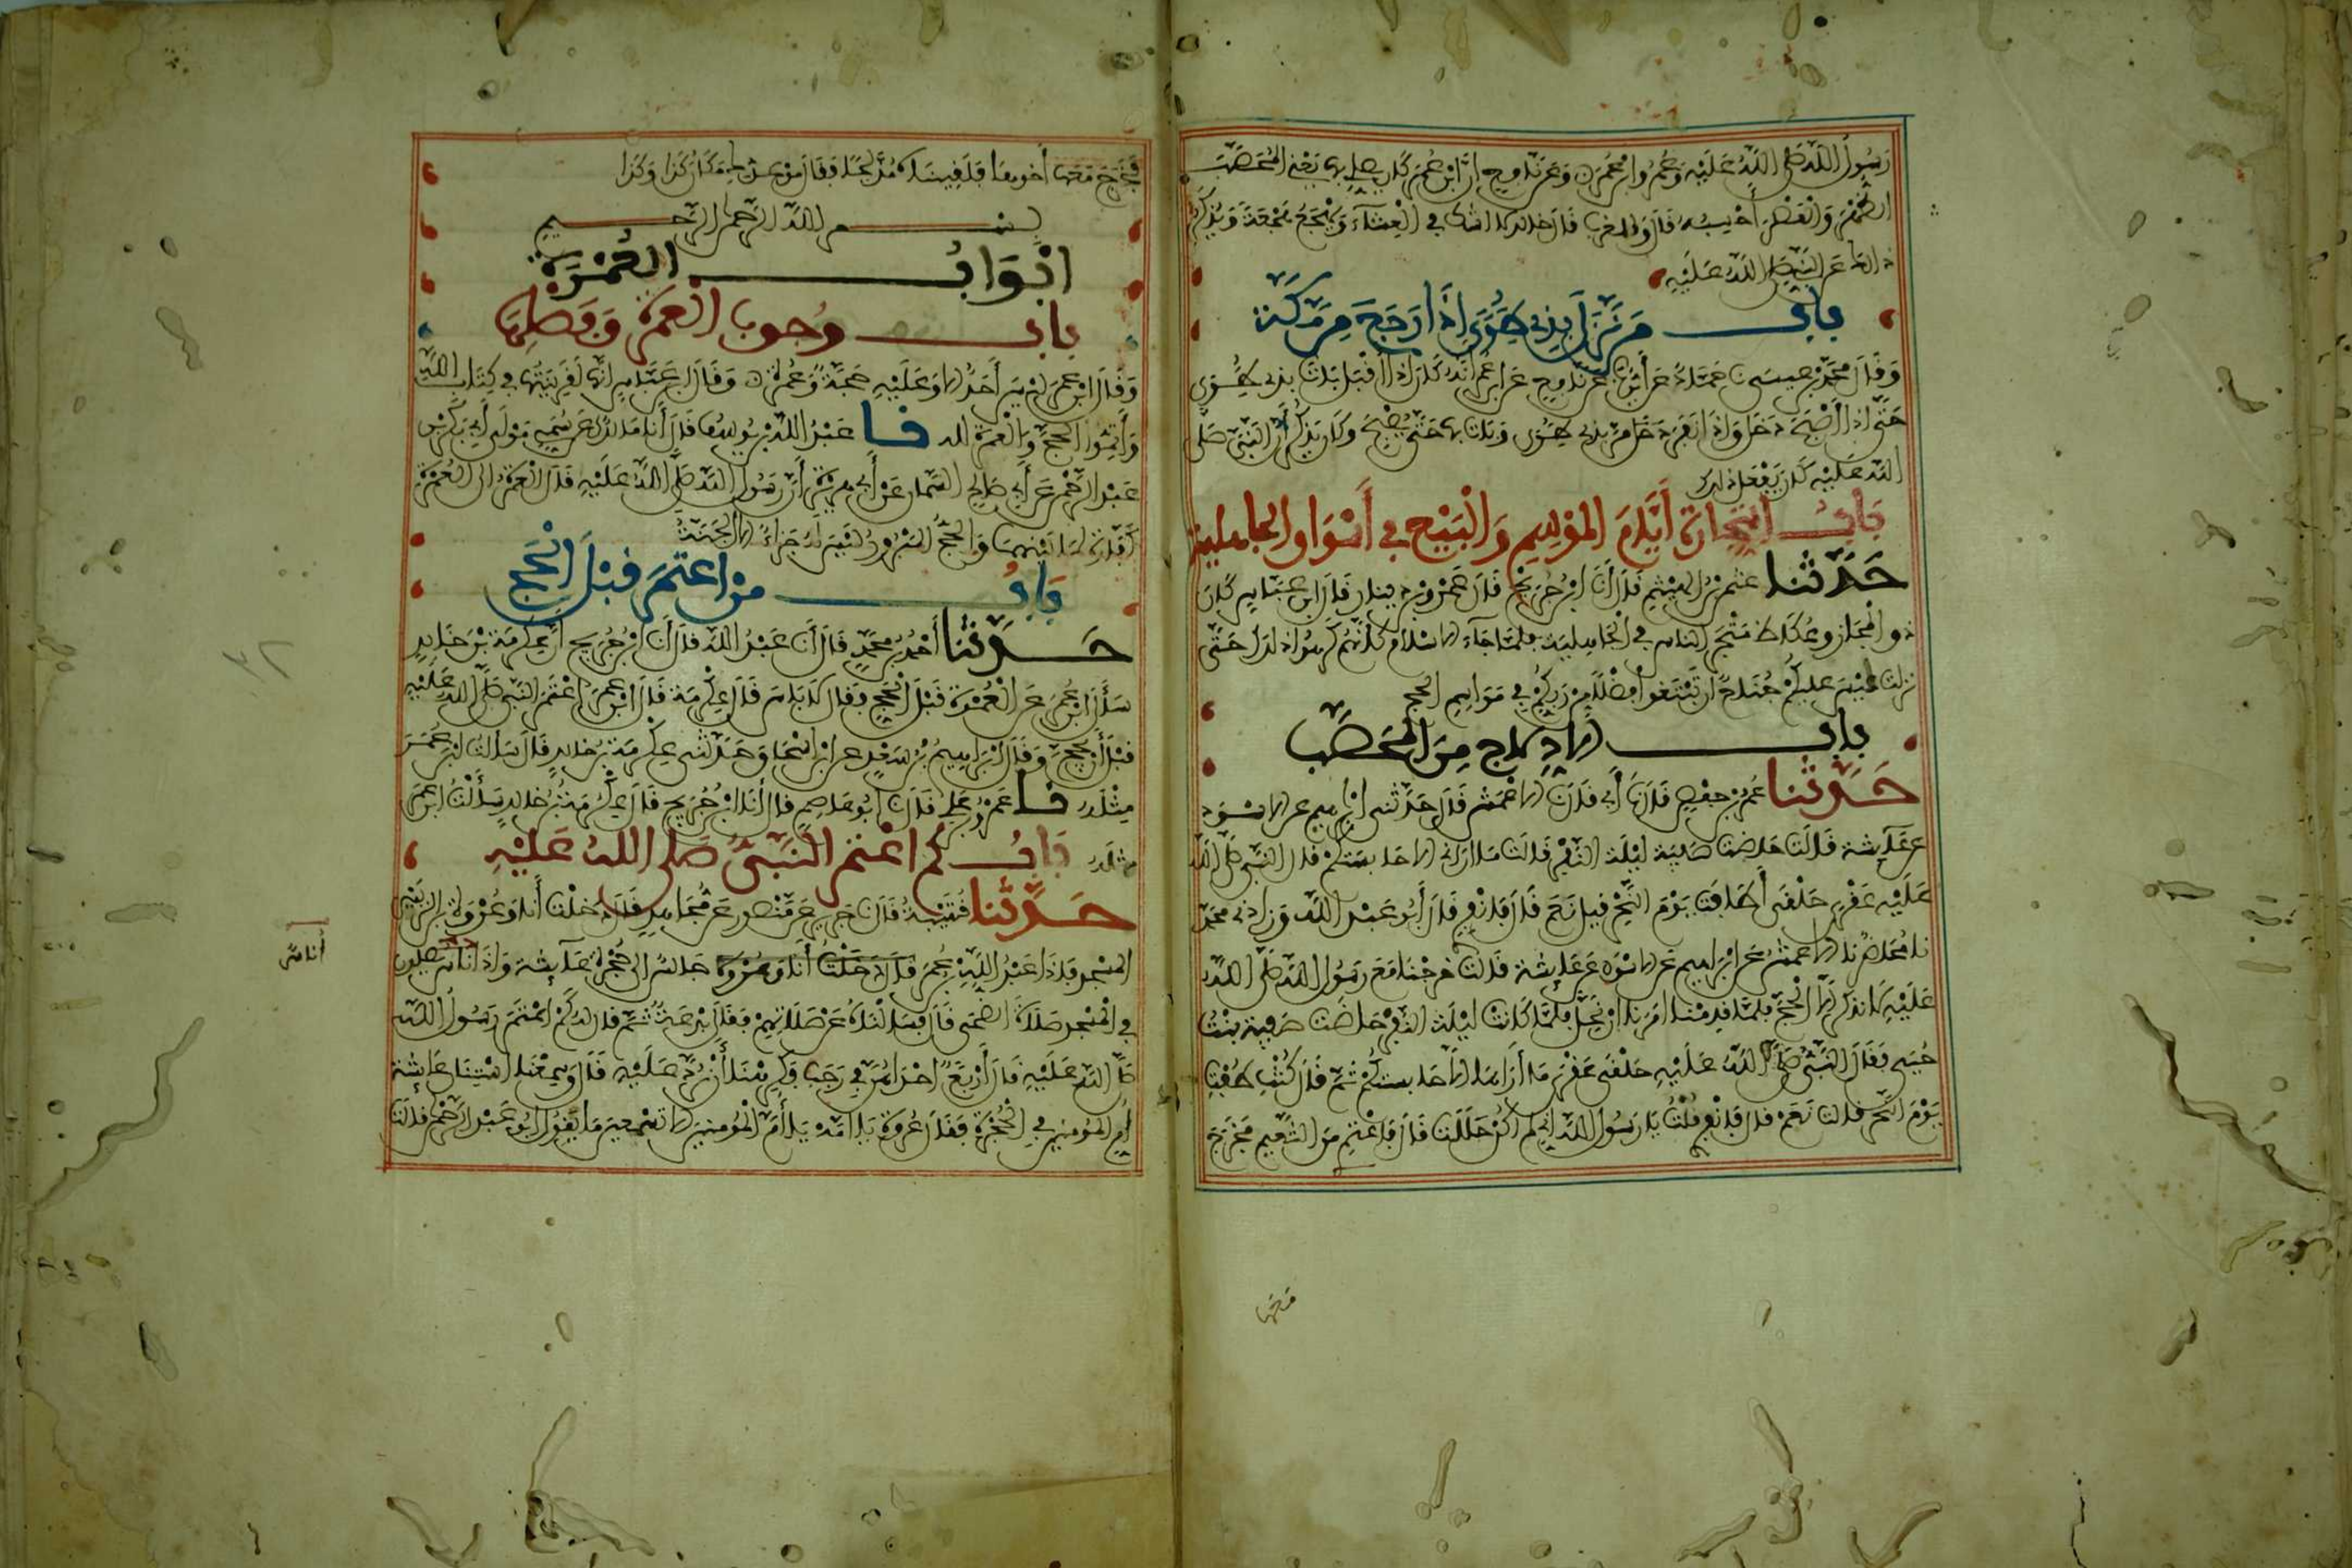 رَسُولُ اللَّهِ صَلَّى اللَّهُ عَلَيْهِ وَعُمَرُ وابْنُ عُمَرَ وَعَن نافِعٍ انَّ ابْنَ عُمَرَ كَانَ يصلى بها يَعْنِى المُحَصَّبَ
الظُّهْرَ وَالْعَصْرَ أَحْسِبُهُ قَالَ والمغرب قَالَ خالد لا اشك في الْعِشَآءِ وَيَهْجَعُ هَجْعَةً وَيَذْكُرُ
ذالك عَنِ النَّبِىِّ صَلَّى اللَّهُ عَلَيْهِ
باب مَن نَّزَلَ بِذِى طُوًى إِذَا رَجَعَ مِن مَّكَّةَ
وَقَالَ مُحَمَّدُ بْنُ عِيسَى نا حَمَّادٌ عَن أَيُّوبَ عَن نافع عَن ابن عُمَرَ أَنَّهُ كَانَ إِذَا أَقْبَلَ بَاتَ بذى طُوًى
حَتَّى اذا أَصْبَحَ دَخَلَ وَإِذَا نَفَرَ مَرَّ بذى طُوًى وَبَاتَ بها حَتَّى يُصْبِحَ وكَانَ يَذْكُرُ أَنَّ النَّبِىَّ صَلَّى
اللَّهُ عَلَيْهِ كَانَ يَفْعَلُ ذلك
بَابُ التِّجَارَةِ أَيَّامَ المَوْسِمِ وَالْبَيْعِ فِى أَسْوَاقِ الجَاهِلِيَّةِ
حَدَّثَنَا عُثْمَنُ بْنُ الهَيْثَمِ قَالَ أَنَا ابْنُ جُرَيْجٍ قَالَ عَمْرُو بْنُ دينار قَالَ ابن عَبَّاسٍ كَانَ
ذو الْمَجَازِ وعُكَاظٌ مَتْجَرَ النَّاسِ فِى الْجَاهِلِيَّةِ فَلَمَّا جَآءَ الاسْلَامُ كَأَنَّهُمْ كَرِهُوا ذلك حَتَّى
نزلت لَيْسَ عليْكُمْ جُنَاحٌ ان تَبْتَغُوا فَضْلاً مِّن رَّبِّكُمْ فِى مَوَاسِمِ الْحَجِّ
باب الادِّلاجِ مِنَ الْمُحَصَّبِ
حَدَّثَنَا عُمَرُ بْنُ حَفْصٍ قَالَ نَا أَبِى قَالَ نَا الاعْمَشُ قَالَ حَدَّثَنِى إِبْرَاهِيمُ عن الاسْوَدِ
عَن عَائِشَةَ قَالَتْ حَاضَتْ صَفِيَّةُ لَيْلَةَ النَّفْرِ فَقَالَتْ مَا ارَانِى الا حَابِسَتَكُمْ قال النَّبِىُّ صَلَّى اللَّهُ
عَلَيْهِ عَقْرَى حَلْقَى أَطَافَتْ يَوْمَ النَّحْرِ قِيلَ نَعَمْ قَالَ فَانْفِرِى قَالَ أَبُو عَبْدِ اللَّهِ وَزَادَنِى مُحَمَّدٌ
نا مُحَاضِرٌ نا الاعْمَشُ عَن إِبْرَاهِيمَ عَنِ الاسْوَدِ عَن عَائِشَةَ قَالَتْ خَرَجْنَا مَعَ رَسُولِ اللَّهِ صَلَّى اللَّهُ
عَلَيْهِ لا نَذْكُرُ إلَّا الْحَجَّ فَلَمَّا قَدِمْنَا امَرَنَا انْ نَحِلَّ فَلَمَّا كَانَتْ لَيْلَةُ النَّفْرِ حَاضَتْ صَفِيَّةُ بِنْتُ
حُيَىٍّ فَقَالَ النَّبِىُّ صَلَّى اللَّهُ عَلَيْهِ حَلْقَى عَقْرَى مَا أَرَاهَا الَّا حَابِسَتَكُمْ ثُمَّ قَالَ كُنْتِ طُفْتِ
يَوْمَ النَّحْرِ قَالَتْ نَعَمْ قال فَانْفِرِى قُلْتُ يَا رَسُولَ اللَّهِ انى لم اكُنْ حَلَلْتُ قَالَ فَاعْتَمِرِى مِنَ التَّنْعِيمِ فَخَرَجَ
فَخَرَجَ مَعَهَا أَخُوهَا فَلَقِينَاهُ مُدَّلِجًا فَقَالَ مَوْعِدُكِ مَكَانُ كَذَا وَكَذَا
بسم اللَّهِ الرَّحْمَنِ الرَّحِيمِ
ابْوَابُ العُمْرَةِ
باب وُجُوبِ الْعُمْرَةِ وَفَضْلِهَا
وَقَالَ ابْنُ عُمَرَ لَيْسَ أَحَدٌ الا وَعَلَيْهِ حَجَّةٌ وَعُمْرَةٌ وَقَالَ ابن عَبَّاسٍ إِنَّهَا لَقَرِينَتُهَا فِى كِتَابِ اللَّهِ
وَأَتِمُّوا الْحَجَّ وَالْعُمْرَةَ لله نا عَبْدُ اللَّهِ بْنُ يُوسُفَ قَالَ أَنَا مَالِكٌ عَن سُمَىٍّ مَوْلَى أَبِى بَكْرِ بْنِ
عَبْدِ الرَّحْمَنِ عَن أَبِى صَالِحٍ السَّمَّانِ عَنْ أَبِى هُرَيْرَةَ أَنَّ رَسُولَ اللَّهِ صَلَّى اللَّهُ عَلَيْهِ قَالَ الْعُمْرَةُ الى الْعُمْرَةِ
كَفَّارَةٌ لِمَا بَيْنَهُمَا وَالْحَجُّ الْمَبْرُورُ لَيْسَ لَهُ جَزَآءٌ الا الْجَنَّةُ
بَابُ مَنِ اعْتَمَرَ قَبْلَ الْحَجِّ
حَدَّثَنَا أَحْمَدُ بْنُ مُحَمَّدٍ قَالَ أَنَا عَبْدُ اللَّهِ قَالَ أَنَا ابْنُ جُرَيْجٍ انَّ عِكْرِمَةَ بْنَ خَالِدٍ
سَأَلَ ابْنَ عُمَرَ عَنِ الْعُمْرَةِ قَبْلَ الْحَجِّ فَقَالَ لَا بَأسَ قَالَ عِكْرِمَةُ قَالَ ابْنُ عُمَرَ اعْتَمَرَ النَّبِىُّ صَلَّى اللَّهُ عَلَيْهِ
قَبْلَ أَن يَحُجَّ وَقَالَ إِبْرَاهِيمُ بْنُ سَعْدٍ عن ابْنِ إِسْحَاقَ حَدَّثَنِى عِكْرِمَةُ بْنُ خَالِدٍ قَالَ سَأَلْتُ ابْنَ عُمَرَ
مِثْلَهُ نا عَمْرُو بْنُ عَلِىٍّ قَالَ نَا أَبُو عَاصِمٍ قَالَ أَنَا ابْنُ جُرَيْجٍ قَالَ عِكْرِمَةُ بْنُ خَالِدٍ سَأَلْتُ ابْنَ عُمَرَ
مثْلَهُ بَابُ كَمِ اعْتَمَرَ النَّبِىُّ صَلَّى اللَّهُ عَلَيْهِ
حَدَّثَنَا قُتَيْبَةُ قَالَ نَا جَرِيرٌ عَن مَّنْصُورٍ عَن مُّجَاهِدٍ قَالَ دَخَلْتُ أَنَا وَعُرْوَةُ بْنُ الزُّبَيْرِ
المَسْجِدَ فَإِذَا عَبْدُ اللَّهِ بْنُ عُمَرَ قال دَخَلْتُ أَنَا وَعُرْوَة جَالِسٌ الى حُجْرَةِ عَآئِشَةَ وَإِذَا أُنَاسٌ يُصَلُّونَ
فِى الْمَسْجِدِ صَلَاةَ الضُّحَى قَالَ فَسَأَلْنَاهُ عَنْ صَلَاتِهِمْ فَقَالَ بِدْعَةٌ ثُمَّ قَالَ لَهُ كَمِ اعْتَمَرَ رَسُولُ اللَّهِ
صَلَّى اللَّهُ عَلَيْهِ قَالَ أَرْبَعٌ احْدَاهُنَّ فِى رَجَبٍ فَكَرِهْنَا أَنْ نَرُدَّ عَلَيْهِ قَالَ وَسَمِعْنَا اسْتِنَانَ عَائِشَةَ
أُمِّ الْمُؤْمِنِينَ فِى الْحُجْرَةِ فَقَالَ عُرْوَةُ يَا امَّهْ يَا أُمَّ الْمُؤْمِنِينَ الا تَسْمَعِينَ مَا يَقُولُ ابُو عَبْدِ الرَّحْمَنِ قَالَتْ
أناسٌ